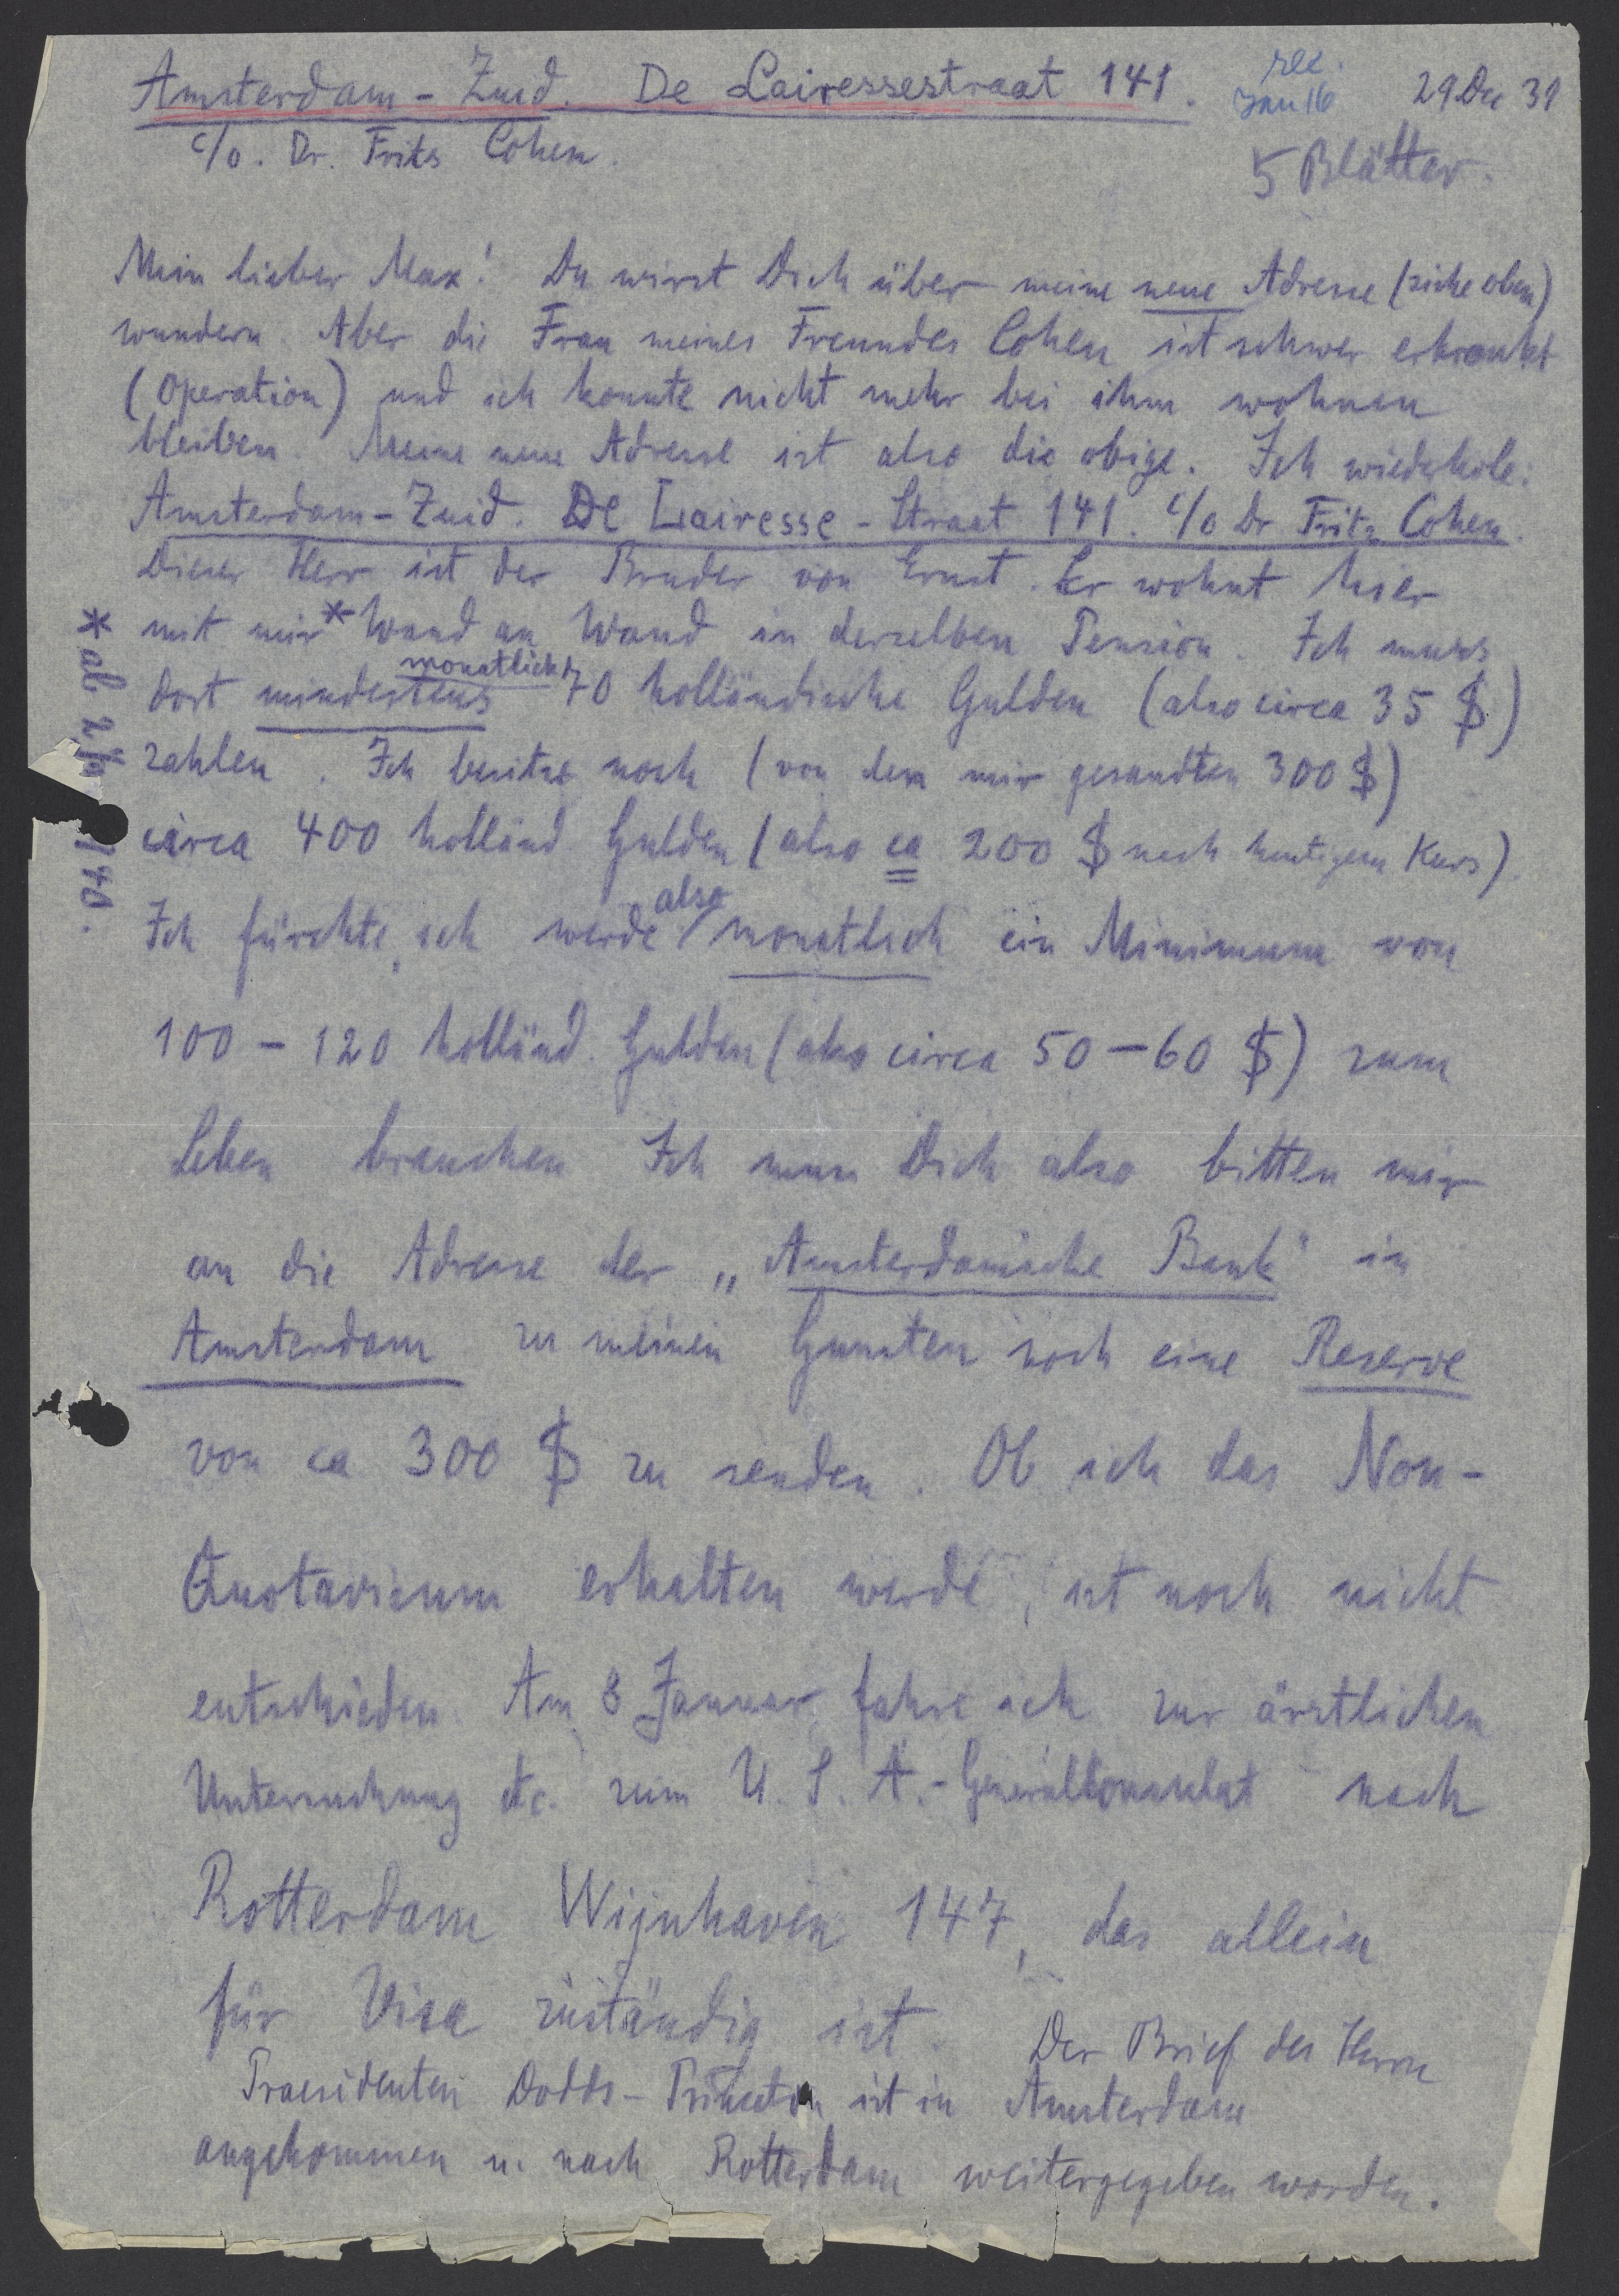 Amsterdam-Zuid. De Lairessestraat 141.
rec.
Jan 16
29 Dec 39
c/o. Dr. Frits Cohen.
5 Blätter.
Mein lieber Max! Du wirst Dich über meine neue Adresse (siehe oben)
wundern. Aber die Frau meines Freundes Cohen ist schwer erkrankt
(Operation) und ich konnte nicht mehr bei ihm wohnen
bleiben. Meine neue Adresse ist also die obige. Ich wiederhole:
Amsterdam-Zuid. De Lairesse-Straat 141. c/o Dr Fritz Cohen.
Dieser Herr ist der Bruder von Ernst. Er wohnt hier
mit mir* Wand an Wand in derselben Pension. Ich muss
dort mindestens monatlich 70 holländische Gulden (also circa 35 $)
zahlen. Ich besitze noch (von den mir gesandten 300 $)
circa 400 holländ Gulden (also ca 200 $ nach heutigem Kurs).
Ich fürchte, ich werde also monatlich ein Minimum von
100 - 120 holländ. Gulden (also circa 50 - 60 $) zum
Leben brauchen Ich muss Dich also bitten mir
an die Adresse der „Amsterdamsche Bank" in
Amsterdam zu meinen Gunsten noch eine Reserve
von ca 300 $ zu senden. Ob ich das Non-
Quotavisum erhalten werde, ist noch nicht
entschieden. Am 8 Januar fahre ich zur ärztlichen
Untersuchung etc. zum U. S. A.-Generalkonsulat nach
Rotterdam Wijnhaven 147, das allein
für Visa zuständig ist. Der Brief des Herrn
Praesidenten Dodds-Princeton ist in Amsterdam
angekommen u. nach Rotterdam weitergegeben worden.
* ab 2/ 1940.